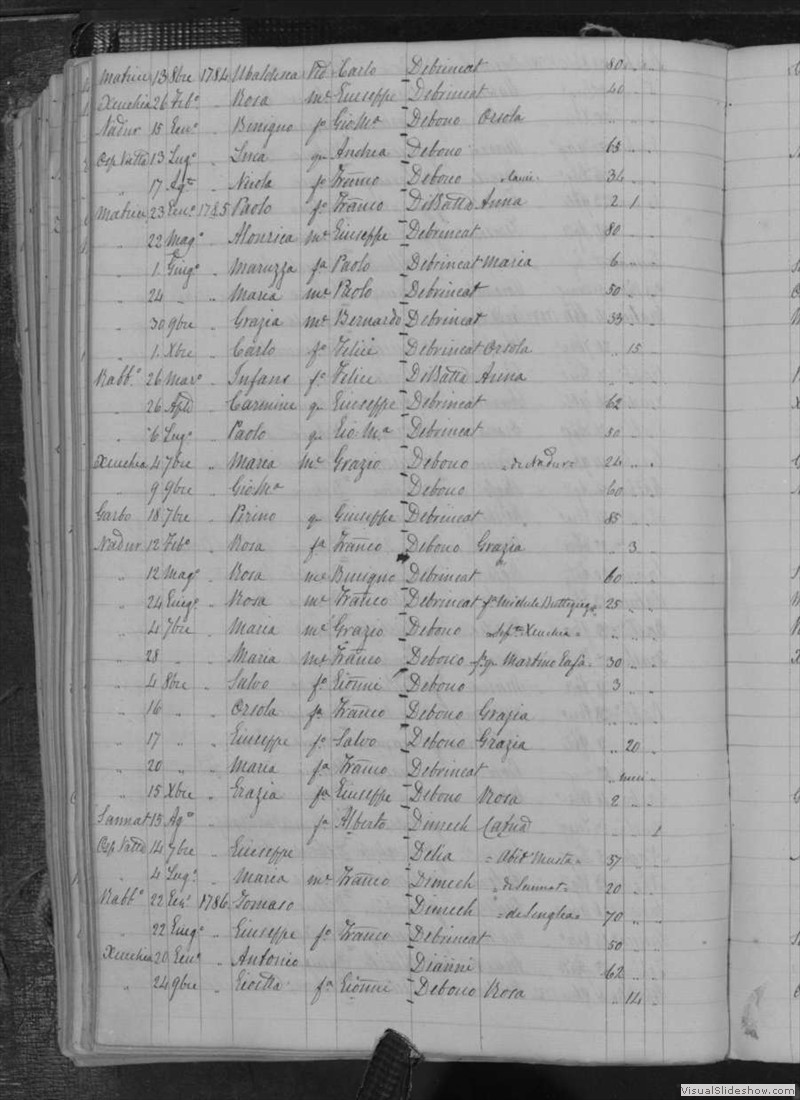 Matrice 13 8bre 1784 Ubaldesca Carlo Debrincat 80
Xeuchia 26 Feb° " Rosa me Giuseppe Debrincat 40
Nadur 15 Gen° " Benigno fo GioMa Debono Orsola
Osp Vatta 13 Lug° " Luca qm Andrea Debono 65
" 17 Ag° " Nicola fo Franco Debono 34
Matrice 23 Gen° 1785 Paolo fo Franco DiBatta Anna 2 1
" 22 Mag° " Alonsica me Giuseppe Debrincat 80
" 1 Giug° " Maruzza fa Paolo Debrincat Maria 6
" 24 " " Maria me Paolo Debrincat 50
" 30 9bre " Grazia me Bernardo Debrincat 33
" 1 Xbre " Carlo fo Felici Debrincat Orsola " 15
Rabb° 26 Mar° " Infans fo Felice DiBatta Anna
" 26 Apl " Carmine qm Giuseppe Debrincat 62
" 6 Lug° " Paolo qm Gio Ma Debrincat 50
Xeuchia 4 7bre " Maria me Grazio Debono = di Nadur = 24
" 9 9bre " GioMa Debono 60
Garbo 18 7bre " Perino qm Giuseppe Debrincat 85
Nadur 12 Feb° " Rosa fa Franco Debono Grazia " 3
" 12 Mag° " Rosa me Benigno Debrincat 60
" 24 Giug° " Rosa me Franco Debrincat fa Michele Buttegieg 25
" 4 7bre " Maria me Grazio Debono = Septa Xeuchia =
" 28 " " Maria me Franco Debono Martino 30
" 4 8bre " Salvo fo Gionni Debono 3
" 16 " Orsola fa Franco Debono Grazia
" 17 " " Giuseppe fo Salvo Debono Grazia " 20
" 20 " " Maria fa Franco Debrincat
" 15 Xbre " Grazia fa Giuseppe Debono Rosa 2
Sannat 13 Ag° " fa Alberto Dimech 1
Osp Vatta 14 7bre " Giuseppe Delia = Abit Musta = 57
" 4 Lug° " Maria me Franco Dimech = di Sannat = 20
Rabb° 22 Gen° 1786 Tomaso Dimech = di Senglea = 70
" 22 Giug° " Giuseppe fo Franco Debrincat 50
Xeuchia 20 Gen° " Antonio Dianni 62
" 24 9bre " fa Gionni Debono Rosa " 14
VisualSlideshow.com